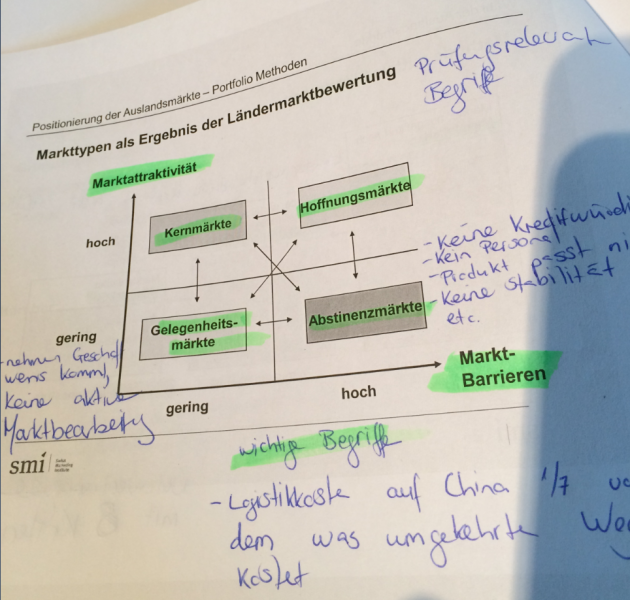 Positionierung der Auslandsmärkte – Portfolio Methoden
Prüfungsrelevant
Begriffe
Markttypen als Ergebnis der Ländermarktbewertung
Marktattraktivität
hoch
Kernmärkte
Hoffnungsmärkte
- Keine
- Kein
- Produkt passt
- Keine Stabilität
etc.
gering
Gelegenheits-
märkte
Abstinenzmärkte
- nehmen
wenns kommt,
Keine aktive
Marktbearbeitung
Markt-
Barrieren
gering
hoch
smi
wichtige Begriffe
- Logistikkoste auf China 1/7
dem was umgekehrte
kostet